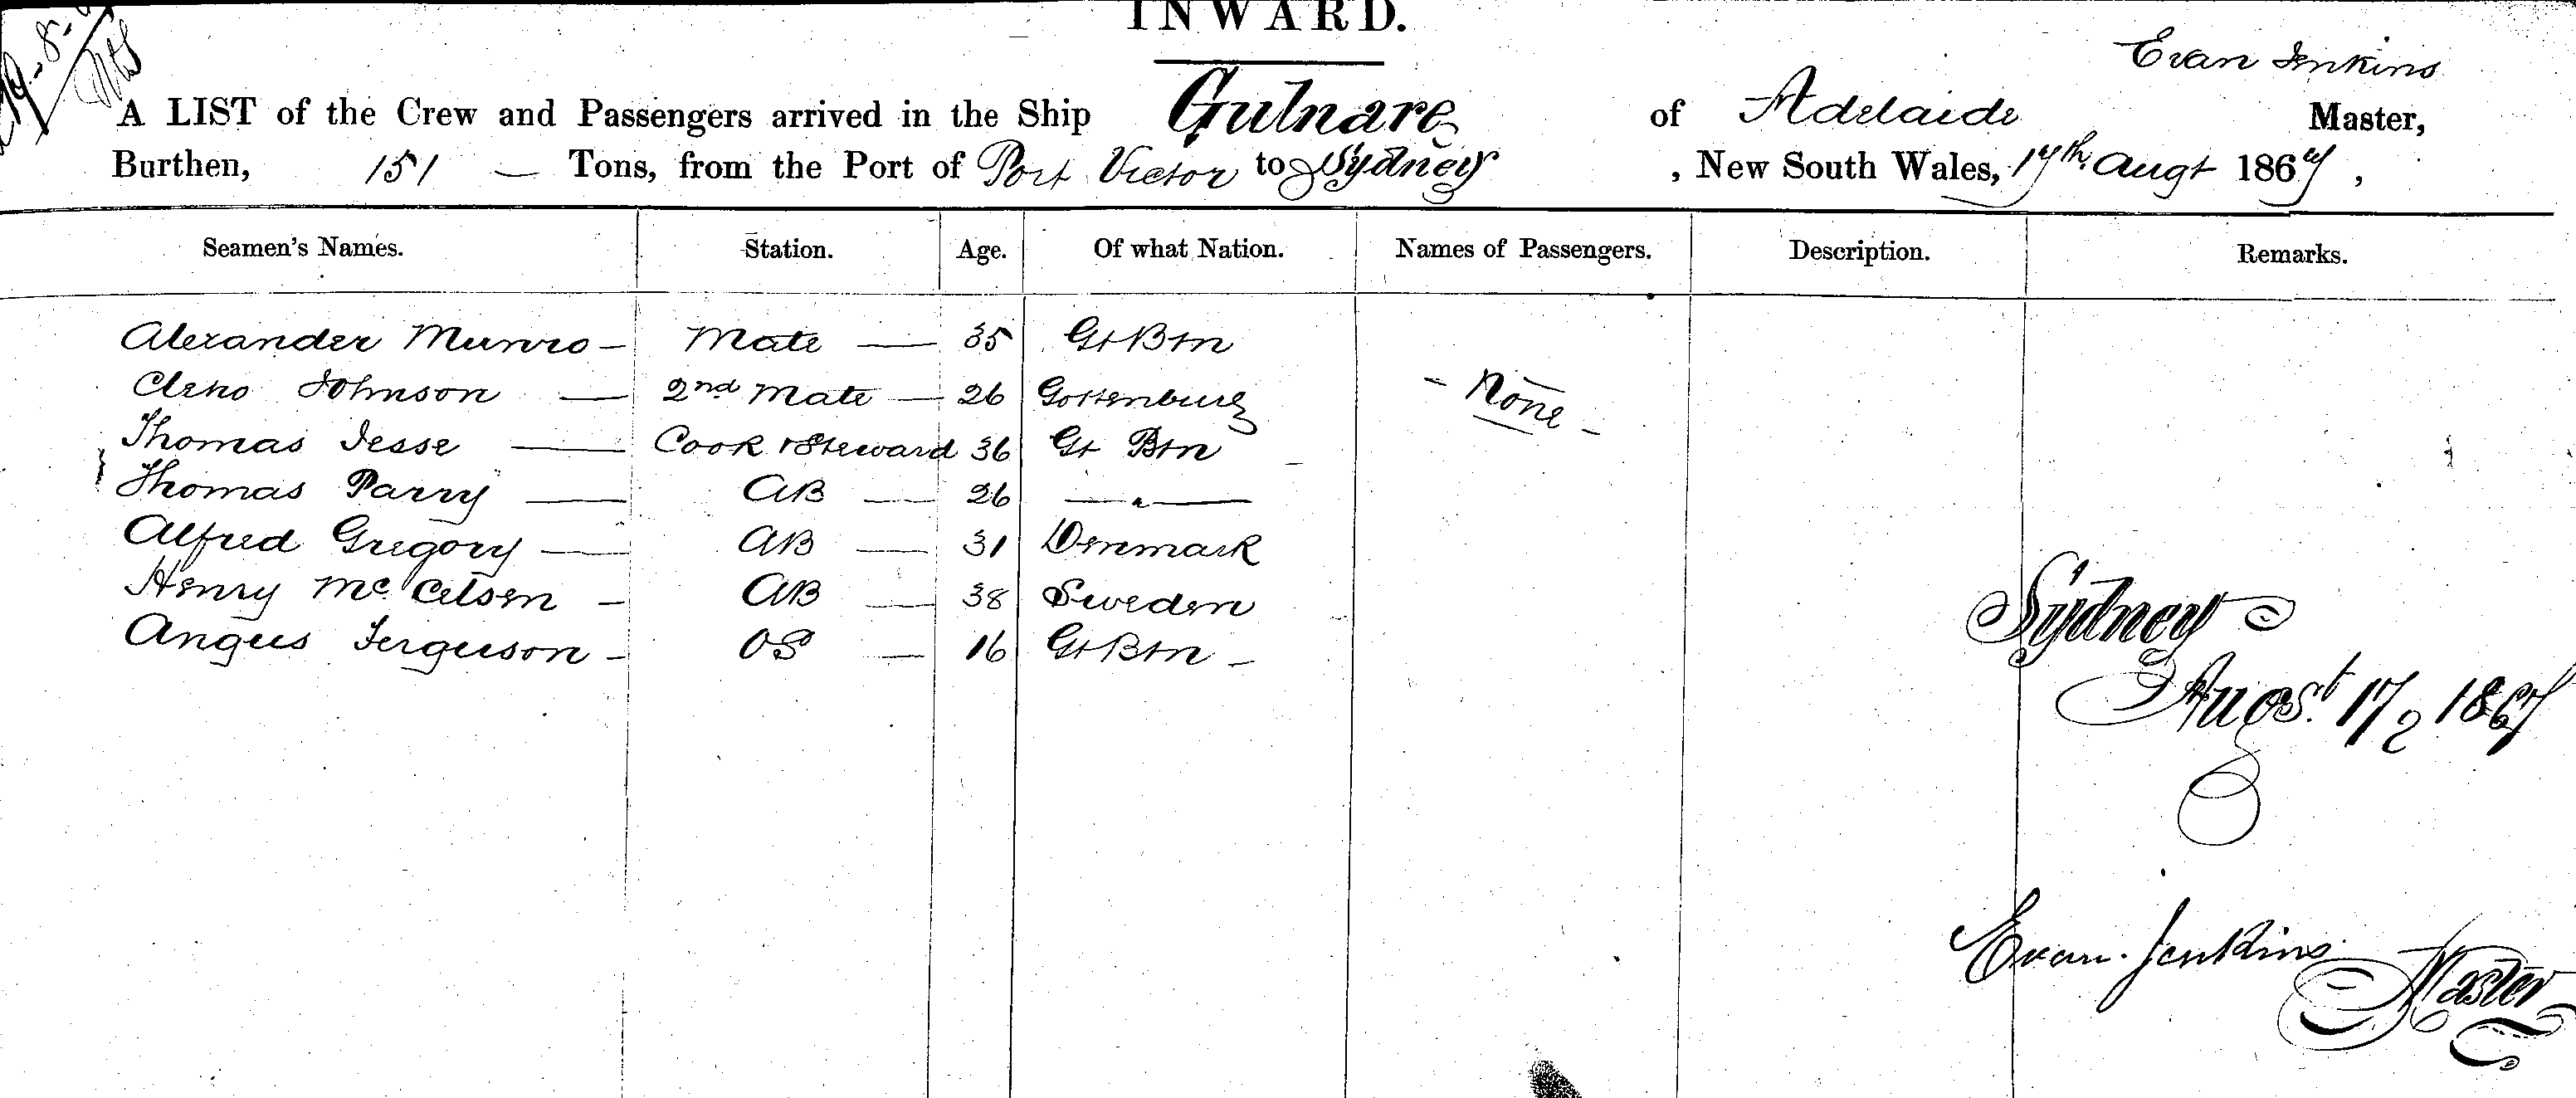 INWARD.
Evan Jenkins
A LIST of the Crew and Passengers arrived in the Ship Gulnare of Adelaide Master,
Burthen, 151 — Tons, from the Port of Port Victor to Sydney , New South Wales, 17th Augt 1867 ,
Seamen's Names. Station. Age. Of what Nation. Names of Passengers. Description. Remarks.
Alexander Munro – Mate — 35 Gt Btn
Johnson — 2nd Mate — 26 Gottenburg - None -
Thomas Jesse — Cook & Steward 36 Gt Btn
Thomas Parry — AB — 26 — " —
Alfred Gregory — AB — 31 Denmark
Henry Mc — AB — 38 Sweden
Angus Ferguson – OS — 16 Gt Btn –
Sydney
Augst. 17, 1867
Evan Jenkins
Master